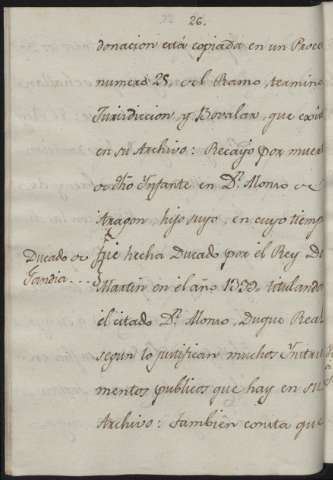 26.
donacion está copiada en un Proce
numero 25, del Ramo, termino
Jurisdiccion y Bovalar, que existe
en su Archivo: Recayó por muer
de dho Infante en Dn. Alonso de
Aragon, hijo suyo, en cuyo tiemp
Ducado de
Gandia...
fue hecha Ducado por el Rey Dn
Martin en el año 1399, titulando
el citado Dn. Alonso, Duque Real
segun lo justifican muchos Instru
mentos publicos que hay en su
Archivo: Tambien consta que